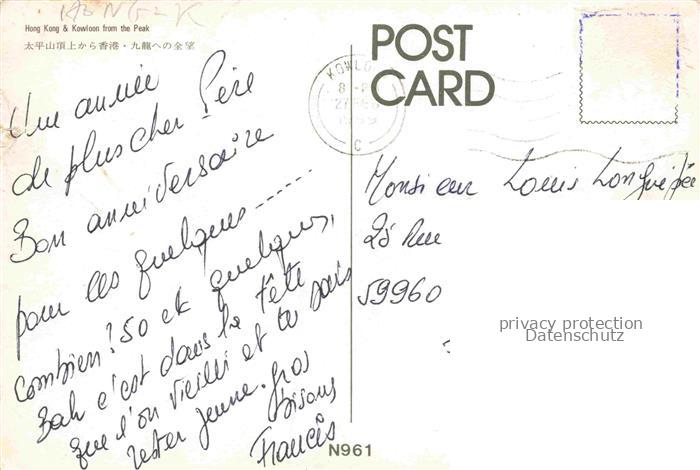 HONG-K
Hong Kong & Kowloon from the Peak
太平山頂上から香港・九龍への全望
Une année
de plus cher Père
Bon anniversaire
pour les quelques ------
combien? 50 et quelques,
Bah c'est dans la tête
que l'on vieilli et tu sais
rester jeune. gros
bisous
Francis
POST
CARD
KOWLO
8
27 FEB
C
Monsieur Louis Longuépée
25 Rue
59960
privacy protection
Datenschutz
N961